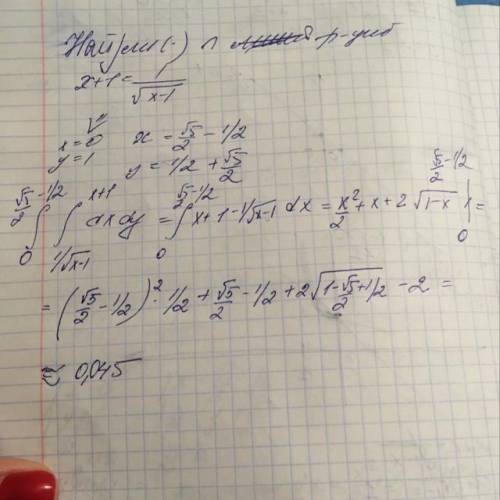 Найдем (·) ∩ р-ций
x+1 = 1/√(x-1)
x=0 x = √5/2 - 1/2
y=1 y = 1/2 + √5/2
∫_0^{√5/2 - 1/2} ∫_{1/√(x-1)}^{x+1} dx dy = ∫_0^{√5/2 - 1/2} x+1-1/√(x-1) dx = x²/2 + x + 2√(1-x) |_0^{√5/2 - 1/2} =
= (√5/2 - 1/2)² · 1/2 + √5/2 - 1/2 + 2√(1-√5/2+1/2) - 2 =
≈ 0,045